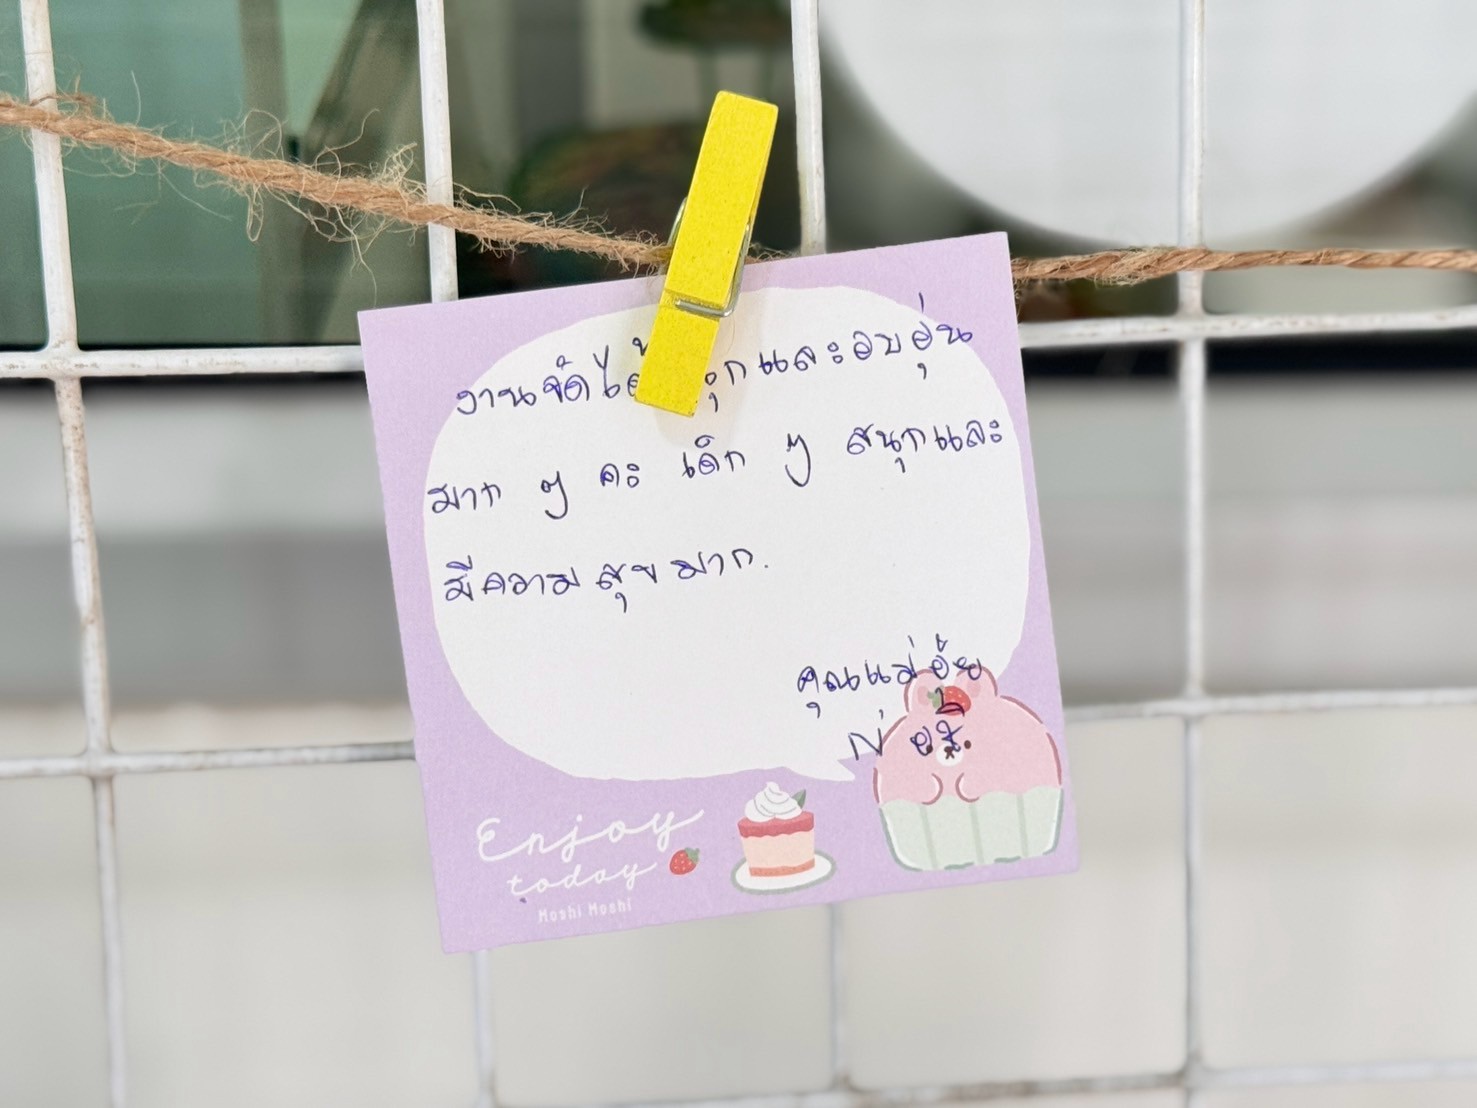 งานจัดได้สนุกและอบอุ่น
มาก ๆ คะ เด็ก ๆ สนุกและ
มีความสุขมาก.
คุณแม่อุ้ย
Enjoy
today
Moshi Moshi